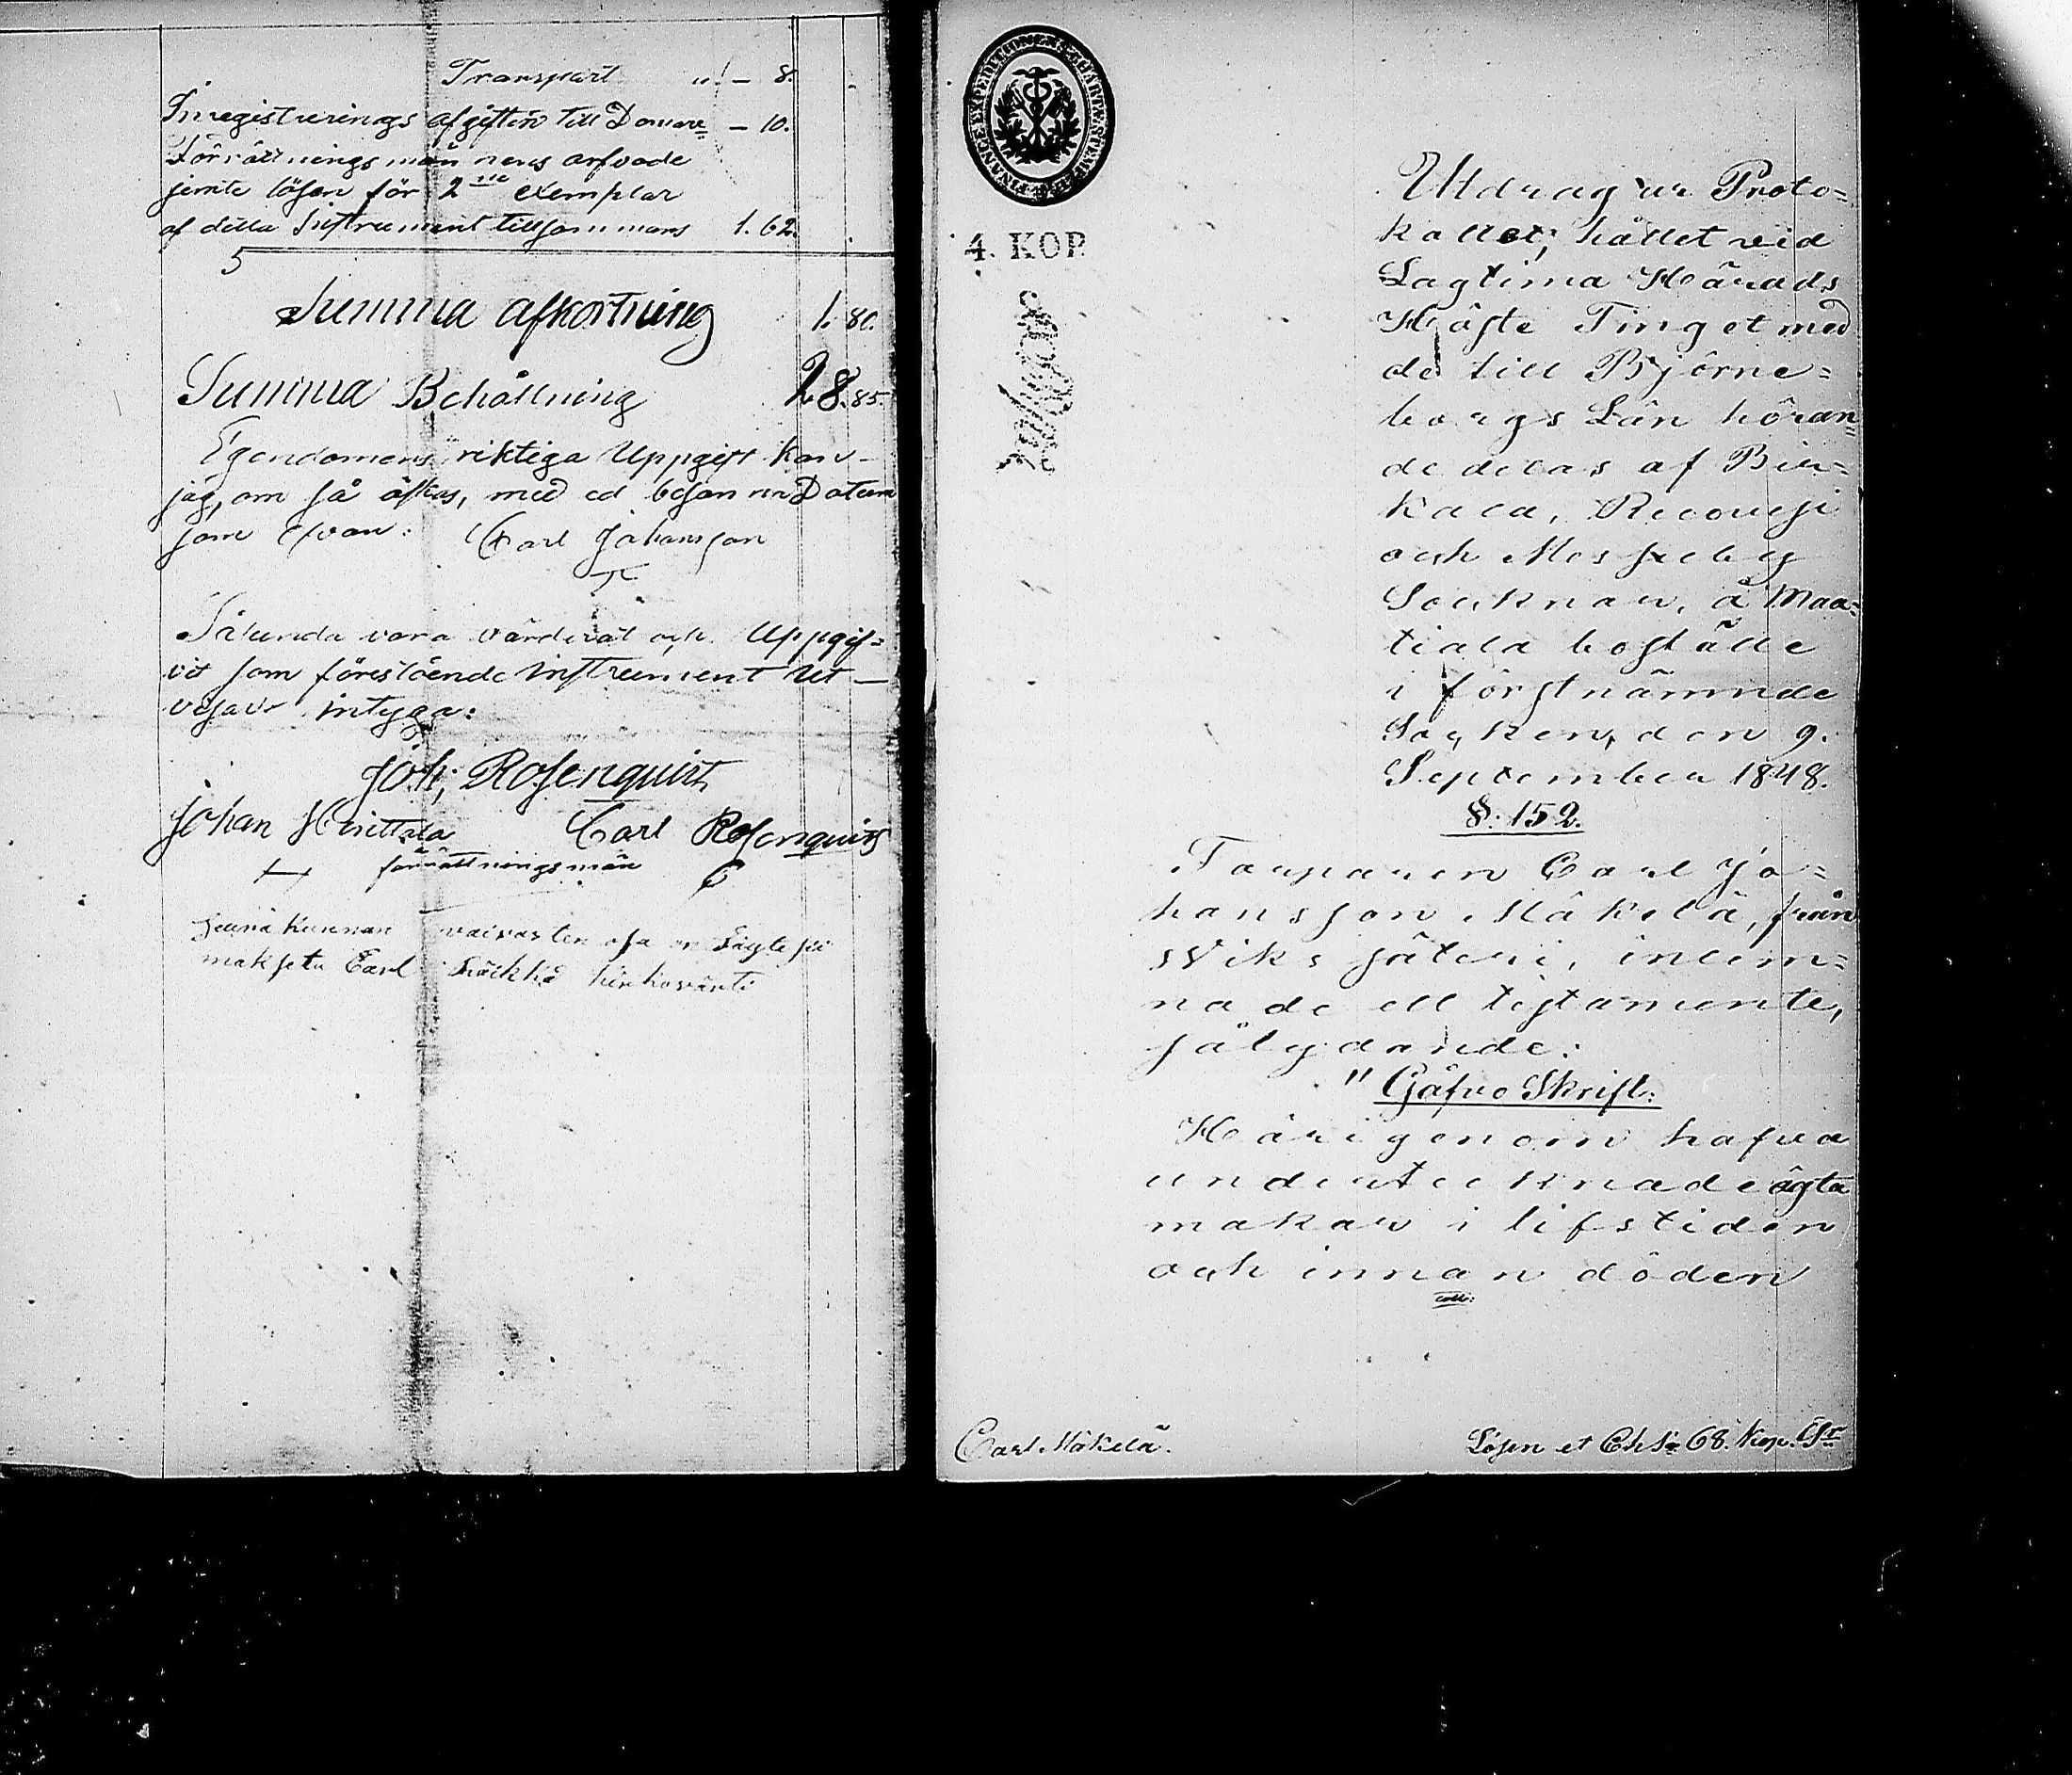 Transport " — 8.
Inregistrerings afgiften till Domare — 10.
Förrättningsmännens arfvode
jemte lösen för 2ne exemplar
af detta Instrument tillsammans 1. 62.
Summa afkortning 1. 80.
Summa Behållning 28. 85.
Egendomens riktiga Uppgift kan
jag, om så äskas, med ed besanna Datum
som ofvan: Carl Johansson
Sålunda vara värderat och Uppgif=
vit som förestående instrument ut—
visar intyga:
Joh: Rosenquist
Johan Hvittala Carl Rosenquist
förrättningsmän
vaivasten osa on
maksetu Carl
FINANCE EXPEDITIONENS CHARTÆ STEMPEL
4. KOP.
Utdrag ur Proto=
kollet, hållet vid
Lagtima Härads
Höste Tinget med
de till Björne=
borgs Län höran=
de delar af Bir=
kala,
och Messuby
Socknar, å Maa=
tiala boställe
i förstnämnde
Socken, den 9.
September 1848.
§. 152.
Torparen Carl Jo=
hansson Mäkelä, från
Wiks säteri, inlem=
nade ett testamente,
sålydande:
" Gåfvo Skrift:
Härigenom hafva
undertecknade ägta
makar i lifstiden
och innan döden
coll:
Carl Mäkelä.
Lösen et Ch Sa 68. Kop. Sr